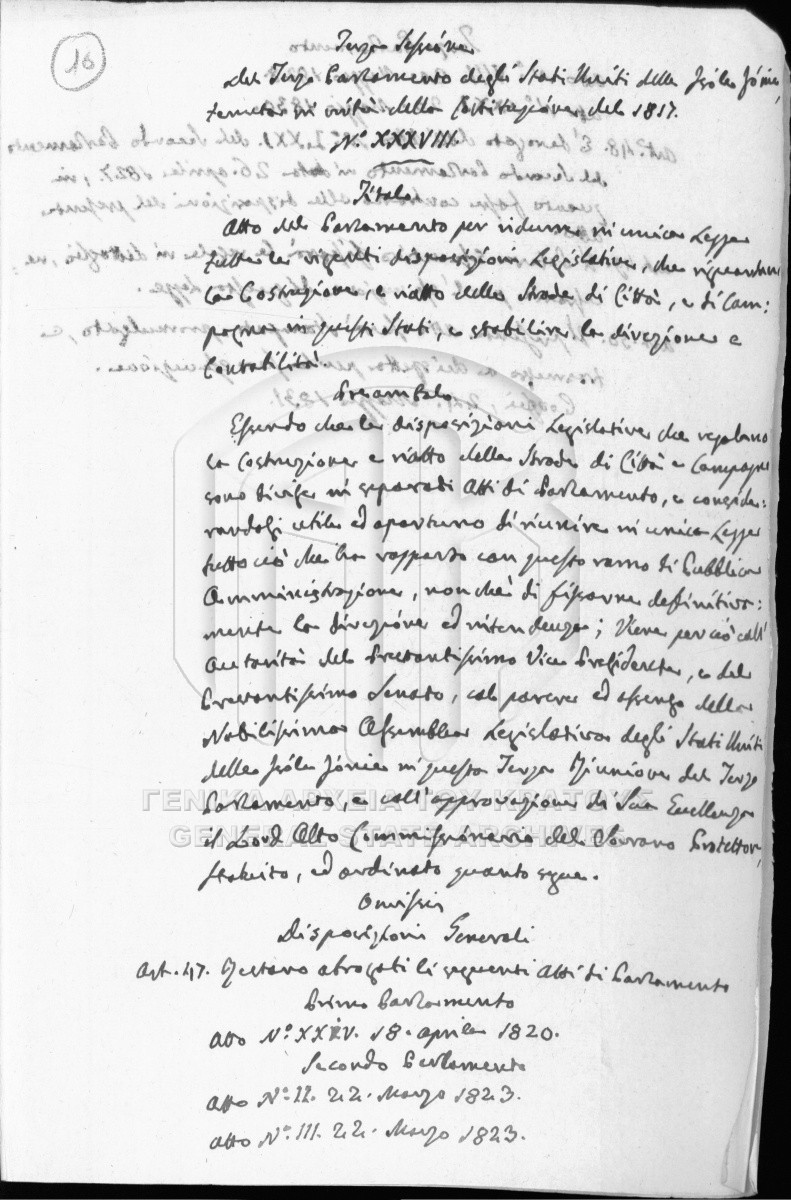 16
Terza Sessione
del Terzo Parlamento degli Stati Uniti delle Isole Jónie,
tenuta in virtù della Costituzione del 1817.
N.º XXXVIII.
Titolo
Atto del Parlamento per ridurre in unica Legge
tutte le vigenti disposizioni Legislative, che riguardano
la Costruzione, e riatto delle Strade di Città, e di Cam:
pagna in questi Stati, e stabilire la direzione e
Contabilità
Preambolo
Essendo che le disposizioni Legislative che regolano
la Costruzione e riatto delle Strade di Città e Campagna
sono divise in separati Atti di Parlamento, e conside:
randosi utile ed oportuno di riunire in unica Legge
tutto ciò che ha rapporto con questo ramo di Pubblica
Amministrazione, nonchè di fissarne definitiva:
mente la direzione ed intendenza; Viene perciò coll'
Autorità del Prestantissimo Vice Presidente, e del
Prestantissimo Senato, col parere ed assenso della
Nobilissima Assemblea Legislativa degli Stati Uniti
delle Isole Jónie in questa Terza Riunione del Terzo
Parlamento, e coll'approvazione di Sua Eccellenza
il Lord Alto Commissionario del Sovrano Protettore,
statuito, ed ordinato quanto segue.
Omissis
Disposizioni Generali
Art. 47. Restano abrogati li seguenti Atti di Parlamento
Primo Parlamento
Atto N.º XXIV. 18. Aprile 1820.
Secondo Parlamento
Atto N.º II. 22. Marzo 1823.
Atto N.º III. 22. Marzo 1823.
ΓΕΝΙΚΑ ΑΡΧΕΙΑ ΤΟΥ ΚΡΑΤΟΥΣ
GENERAL STATE ARCHIVES